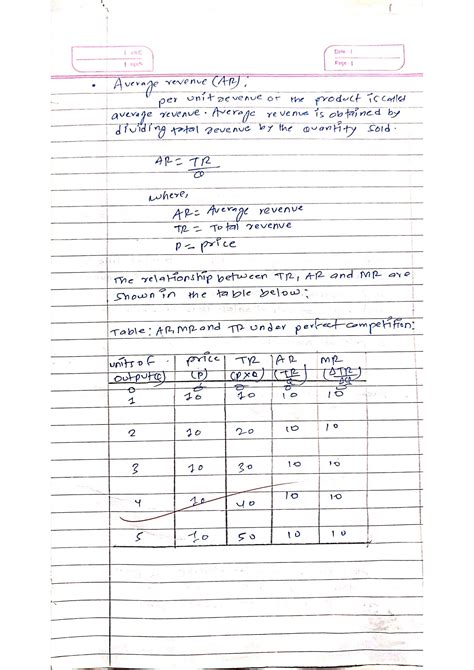 Date :
Page :
• Average revenue (AR):
per unit revenue of the product is called
average revenue. Average revenue is obtained by
dividing total revenue by the quantity sold.
AR = TR
Q
where,
AR = Average revenue
TR = Total revenue
P = price
The relationship between TR, AR and MR are
shown in the table below:
Table: AR, MR and TR under perfect competition:
units of price TR AR MR
output(Q) (P) (P×Q) (TR/Q) (ΔTR/ΔQ)
0 0 0 0 0
1 10 10 10 10
2 10 20 10 10
3 10 30 10 10
4 10 40 10 10
5 10 50 10 10